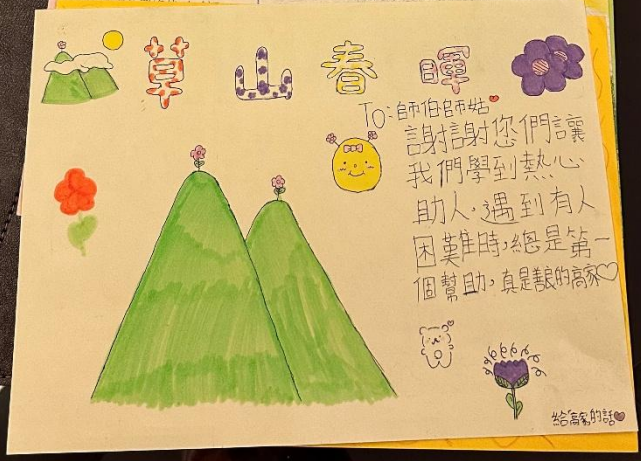 草山春暉
To:師伯師姑
謝謝您們讓
我們學到熱心
助人,遇到有人
困難時,總是第一
個幫助,真是善良的高家♡
給高家的話